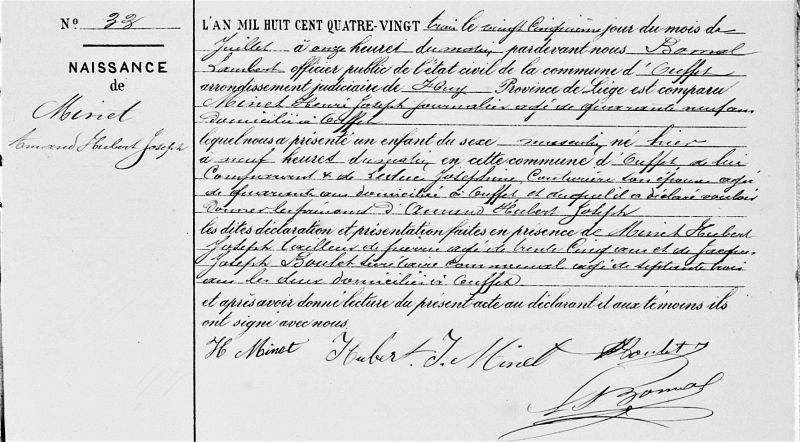 N° 32
NAISSANCE
de
Minet
Armand Hubert Joseph
L'AN MIL HUIT CENT QUATRE-VINGT trois le vingt cinquième jour du mois de
Juillet à onze heures du matin pardevant nous Bomal
Lambert officier public de l'état civil de la commune d'Ouffet
arrondissement judiciaire de Huy Province de Liége est comparu
Minet Henri Joseph journalier agé de quarante neuf ans
domicilié à Ouffet
lequel nous a présenté un enfant du sexe masculin né hier
à neuf heures du matin en cette commune d'Ouffet de lui
Comparant & de Leduc Josephine Couturière son épouse agée
de quarante ans domiciliée à Ouffet et auquel il a déclaré vouloir
donner les prénoms d'Armand Hubert Joseph
les dites déclaration et présentation faites en présence de Minet Hubert
Joseph tailleur de pierres agé de trente cinq ans et de Jacques
Joseph Boulet secrétaire communal agé de septante trois
ans les deux domiciliés à Ouffet
et après avoir donné lecture du présent acte au déclarant et aux témoins ils
ont signé avec nous.
H Minet Hubert. J. Minet Boulet
L Bomal